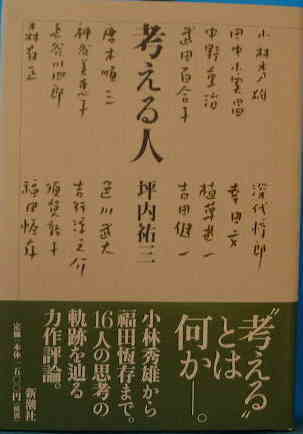 小林秀雄
田中小実昌
中野重治
武田百合子
考える人
唐木順三
神谷美恵子
長谷川四郎
森有正
深代惇郎
幸田文
植草甚一
吉田健一
坪内祐三
色川武大
吉行淳之介
須賀敦子
福田恆存
“考える”
とは
何か―。
小林秀雄から
福田恆存まで。
16人の思考の
軌跡を辿る
力作評論。
新潮社